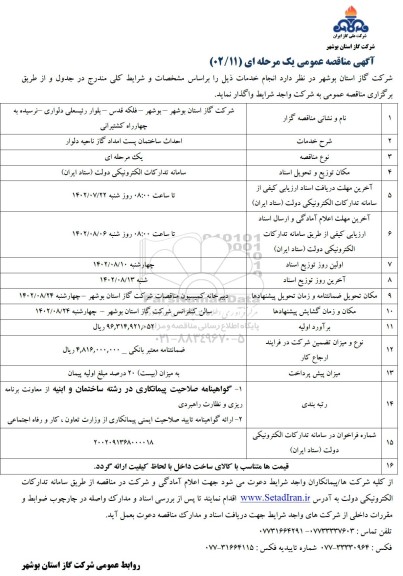 شرکت ملی گاز ایران
شرکت گاز استان بوشهر
آگهی مناقصه عمومی یک مرحله ای (۰۲/۱۱)
شرکت گاز استان بوشهر در نظر دارد انجام خدمات ذیل را براساس مشخصات و شرایط کلی مندرج در جدول و از طریق
برگزاری مناقصه عمومی به شرکت واجد شرایط واگذار نماید.
۱ نام و نشانی مناقصه گزار شرکت گاز استان بوشهر – بوشهر –فلکه قدس –بلوار رئیسعلی دلواری –نرسیده به
چهارراه کشتیرانی
۲ شرح خدمات احداث ساختمان پست امداد گاز ناحیه دلوار
۳ نوع مناقصه یک مرحله ای
۴ مکان توزیع و تحویل اسناد سامانه تدارکات الکترونیکی دولت (ستاد ایران)
۵ آخرین مهلت دریافت اسناد ارزیابی کیفی از
سامانه تدارکات الکترونیکی دولت (ستاد ایران)
تا ساعت ۰۸:۰۰ روز شنبه ۱۴۰۲/۰۷/۲۲
۶ آخرین مهلت اعلام آمادگی و ارسال اسناد
ارزیابی کیفی از طریق سامانه تدارکات
الکترونیکی دولت (ستاد ایران)
تا ساعت ۰۸:۰۰ روز شنبه ۱۴۰۲/۰۸/۰۶
۷ اولین روز توزیع اسناد چهارشنبه ۱۴۰۲/۰۸/۱۰
۸ آخرین روز توزیع اسناد شنبه ۱۴۰۲/۰۸/۱۳
۹ مکان تحویل ضمانتنامه و زمان تحویل پیشنهادها دبیرخانه کمیسیون مناقصات شرکت گاز استان بوشهر –چهارشنبه ۱۴۰۲/۰۸/۲۴
۱۰ مکان و زمان گشایش پیشنهادها سالن کنفرانس شرکت گاز استان بوشهر – چهارشنبه ۱۴۰۲/۰۸/۲۴
پایگاه اطلاع رسانی مناقصه و مزایده
۱۱ برآورد اولیه ۹۶,۳۱۴,۹۲۱,۰۵۲ ریال
۰۲۱-۸۸۳۴۹۶۷۰-۵
۱۲ نوع و میزان تضمین شرکت در فرایند
ارجاع کار
ضمانتنامه معتبر بانکی _ ۴,۸۱۶,۰۰۰,۰۰۰ ریال
۱۳ میزان پیش پرداخت به میزان (بیست) ۲۰ درصد مبلغ اولیه پیمان
۱۴ رتبه بندی ۱- گواهینامه صلاحیت پیمانکاری در رشته ساختمان و ابنیه از معاونت برنامه
ریزی و نظارت راهبردی
۲- ارائه گواهینامه تایید صلاحیت ایمنی پیمانکاری از وزارت تعاون ، کار و رفاه اجتماعی
۱۵ شماره فراخوان در سامانه تدارکات الکترونیکی
دولت (ستاد ایران)
۲۰۰۲۰۹۱۳۶۸۰۰۰۰۱۸
۱۶ قیمت ها متناسب با کالای ساخت داخل با لحاظ کیفیت ارائه گردد.
از کلیه شرکت ها/پیمانکاران واجد شرایط دعوت می شود جهت اعلام آمادگی و شرکت در مناقصه از طریق سامانه تدارکات
الکترونیکی دولت به آدرس www.SetadIran.ir اقدام نمایند تا پس از بررسی اسناد و مدارک واصله در چارچوب ضوابط و
مقررات داخلی از شرکت های واجد شرایط جهت دریافت اسناد و مدارک مناقصه دعوت بعمل آید.
تلفن تماس : ۰۷۷۳۳۳۳۷۶۰۳- ۰۷۷۳۱۶۶۴۲۹۱
فکس : ۳۳۳۳۰۹۶۴-۰۷۷ شماره تاییدیه فکس : ۳۱۶۶۴۱۱۵-۰۷۷
روابط عمومی شرکت گاز استان بوشهر